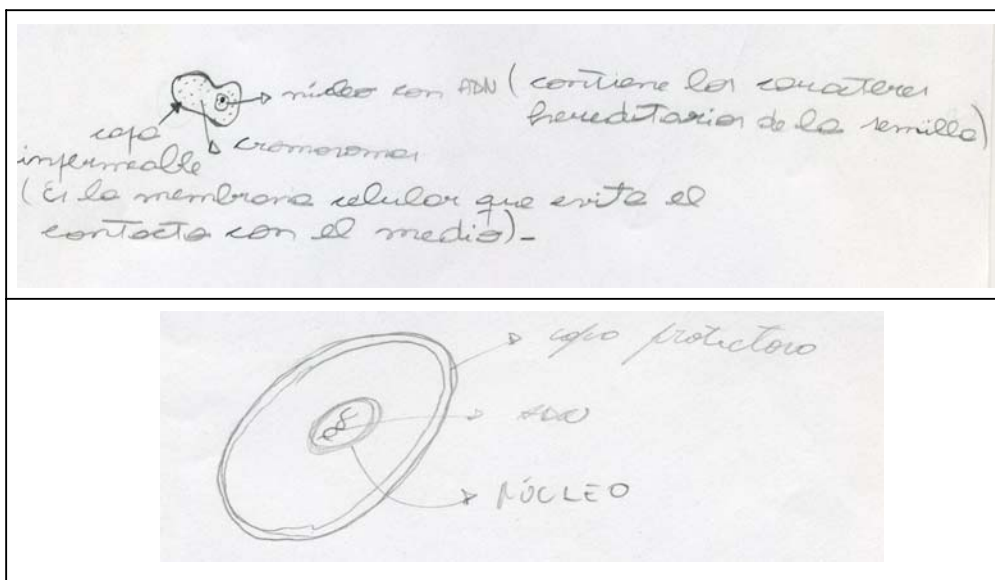 núcleo con ADN (contiene los caracteres
hereditarios de la semilla)
capa
impermeable
cromosomas
(Es la membrana celular que evita el
contacto con el medio)-
capa protectora
ADN
NÚCLEO